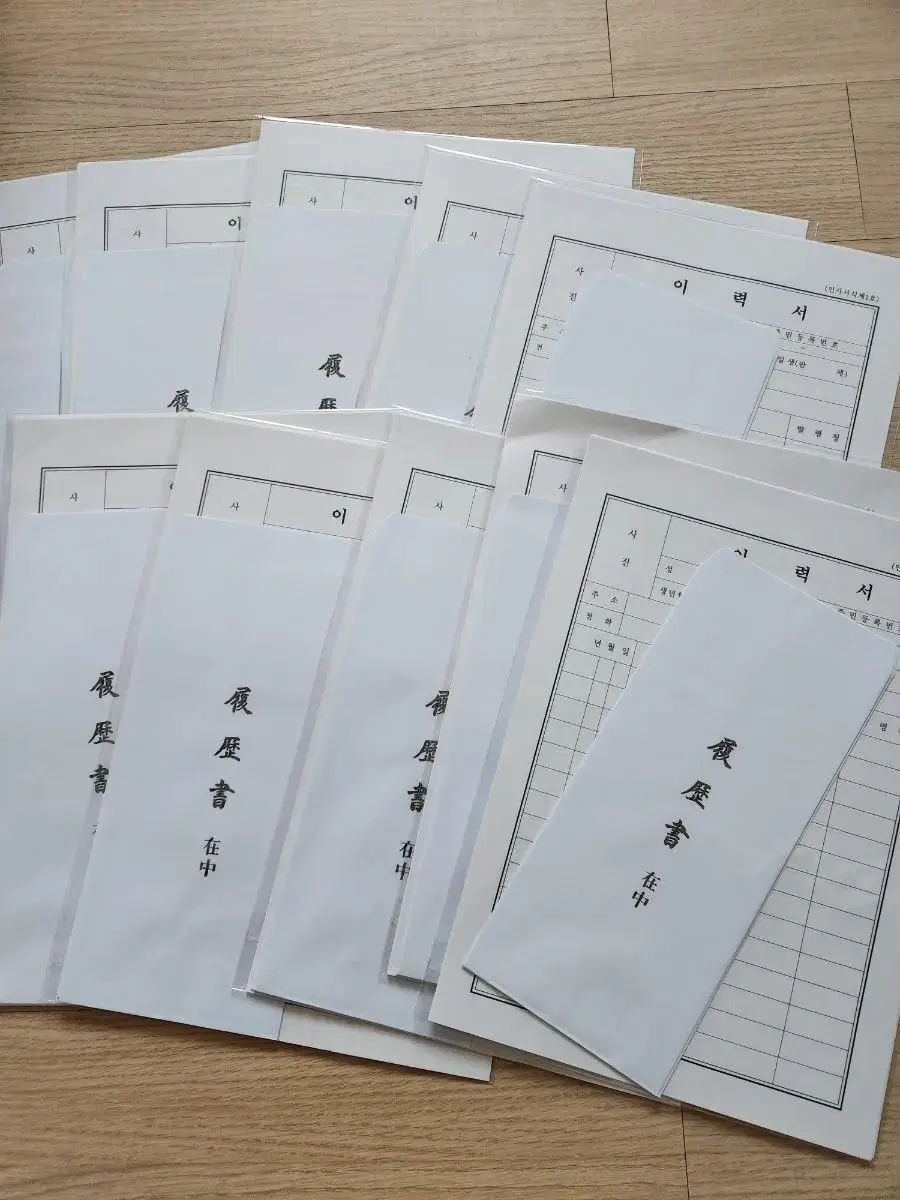 사
사
이
사
이
사
(인사서식제1호)
사
진
이 력 서
주
전
민등록번호
일생(만 세)
발령청
履
履
歷
사
사
이
사
사
이 력 서
사
진
성
생년
주민등록번호
주 소
전 화
년 월 일
履
歷
書
履
歷
書
在
中
履
歷
書
在
中
履
歷
書
在
中